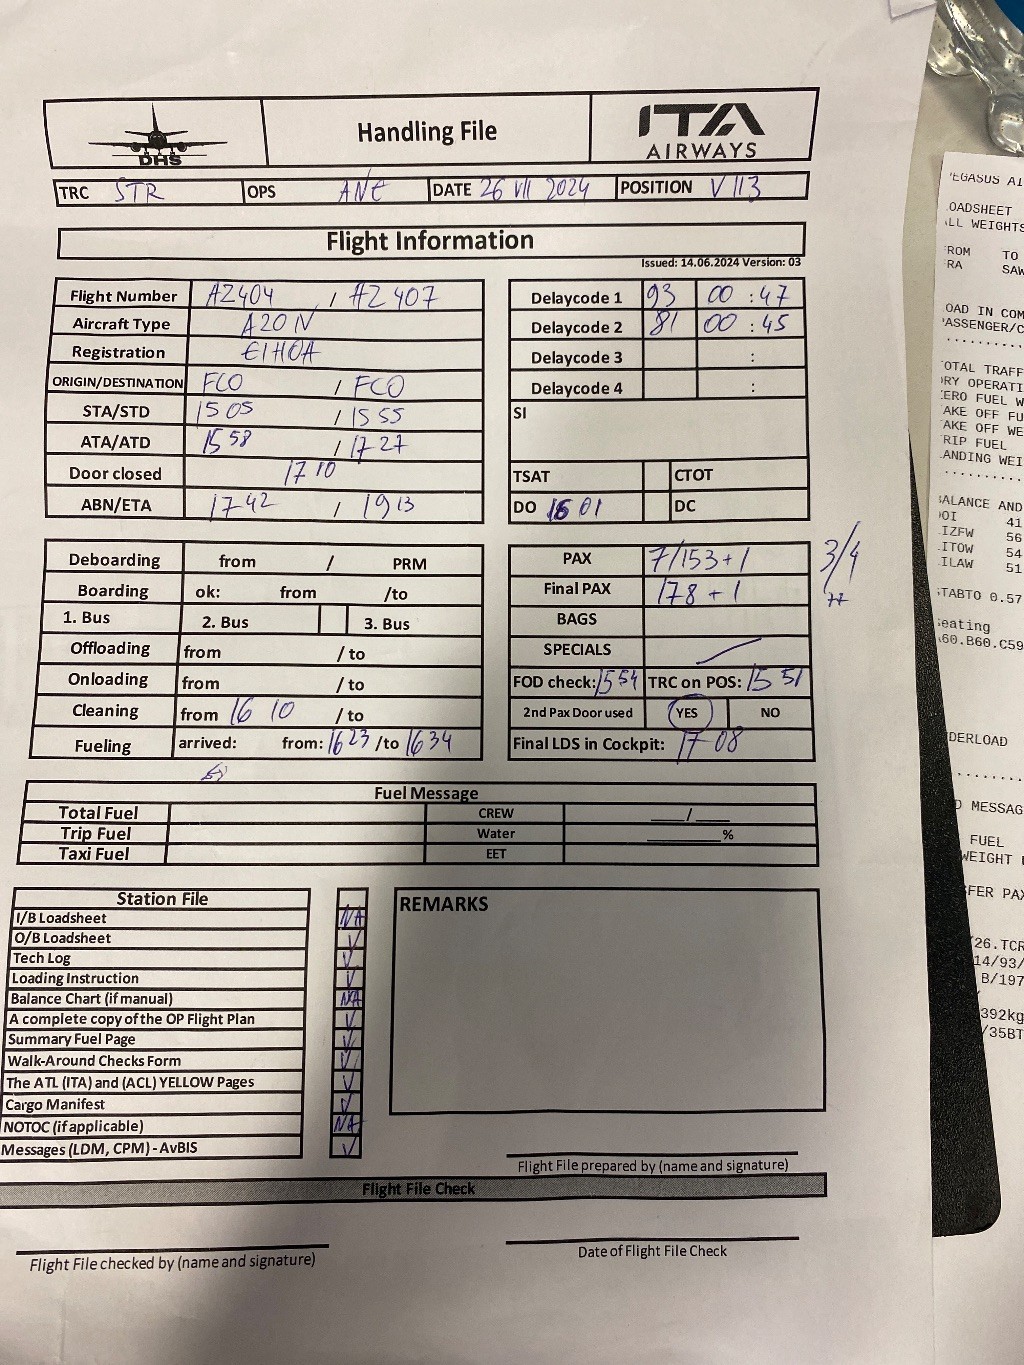 DHS
Handling File
ITA
AIRWAYS
TRC STR OPS ANE DATE 26 VII 2024 POSITION V 113
Flight Information
Issued: 14.06.2024 Version: 03
Flight Number AZ404 / AZ 407
Aircraft Type A20N
Registration EIHOA
ORIGIN/DESTINATION FCO / FCO
STA/STD 15 05 / 15 55
ATA/ATD 15 58 / 17 27
Door closed 17 10
ABN/ETA 17 42 / 19 13
Delaycode 1 93 00 : 47
Delaycode 2 81 00 : 45
Delaycode 3 :
Delaycode 4 :
SI
TSAT CTOT
DO 16 01 DC
Deboarding from / PRM
Boarding ok: from /to
1. Bus 2. Bus 3. Bus
Offloading from / to
Onloading from / to
Cleaning from 16 10 / to
Fueling arrived: from: 16 23 /to 16 34
PAX 7/153+1 3/4
Final PAX 178 + 1
BAGS
SPECIALS
FOD check: 15 54 TRC on POS: 15 51
2nd Pax Door used YES NO
Final LDS in Cockpit: 17 08
Fuel Message
Total Fuel CREW ___/___
Trip Fuel Water ______%
Taxi Fuel EET
Station File
I/B Loadsheet NA
O/B Loadsheet ✓
Tech Log ✓
Loading Instruction ✓
Balance Chart (if manual) NA
A complete copy of the OP Flight Plan ✓
Summary Fuel Page ✓
Walk-Around Checks Form ✓
The ATL (ITA) and (ACL) YELLOW Pages ✓
Cargo Manifest ✓
NOTOC (if applicable) NA
Messages (LDM, CPM) - AvBIS ✓
REMARKS
Flight File prepared by (name and signature)
Flight File Check
Flight File checked by (name and signature)
Date of Flight File Check
EGASUS AI
OADSHEET
LL WEIGHTS
ROM TO
RA SAW
OAD IN COM
ASSENGER/C
OTAL TRAFF
RY OPERATI
ERO FUEL W
AKE OFF FU
AKE OFF WE
RIP FUEL
ANDING WEI
ALANCE AND
OI 41
IZFW 56
ITOW 54
ILAW 51
STABTO 0.57
eating
A60.B60.C59
DERLOAD
D MESSAG
FUEL
WEIGHT
FER PAX
26.TCR
14/93/
B/197
392kg
/35BT